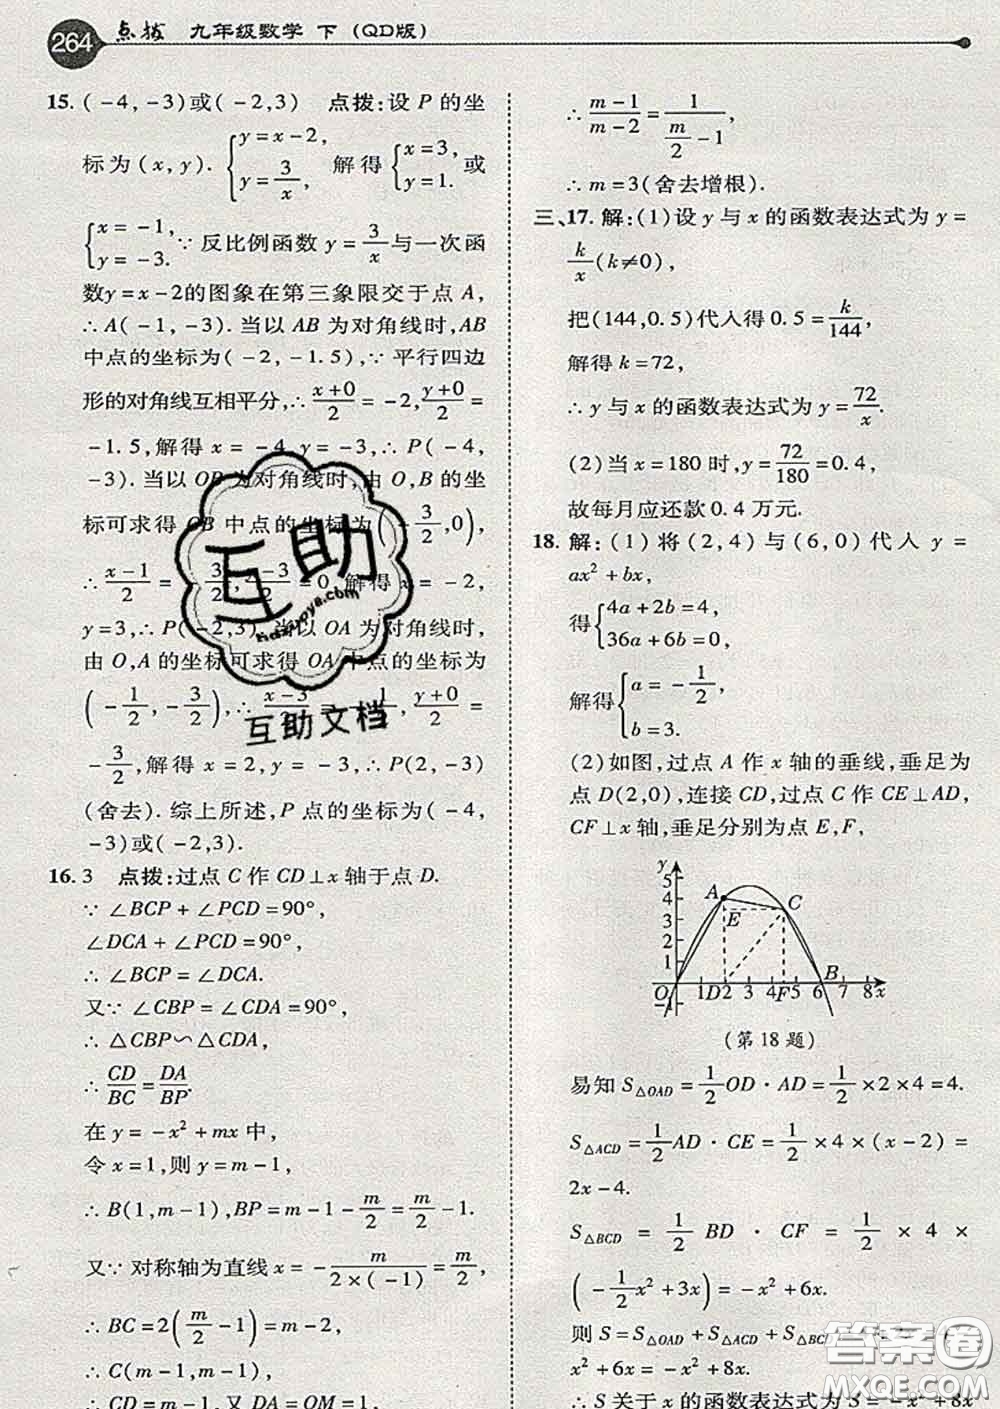 264 点拨 九年级数学 下 (QD版)
15. (-4,-3)或(-2,3) 点拨:设 P 的坐
标为(x,y). {y=x-2, y=3/x, 解得{x=3, y=1. 或
{x=-1, y=-3. ∵反比例函数 y=3/x与一次函
数y=x-2的图象在第三象限交于点 A,
∴A(-1,-3). 当以 AB 为对角线时,AB
中点的坐标为(-2,-1.5),∵平行四边
形的对角线互相平分,∴(x+0)/2=-2,(y+0)/2=
-1.5,解得 x=-4,y=-3,∴P(-4,
-3). 当以 OB 为对角线时,由 O,B 的坐
标可求得 OB 中点的坐标为(-3/2,0),
∴(x-1)/2=-3/2,(y-3)/2=0,解得 x=-2,
y=3,∴P(-2,3). 当以 OA 为对角线时,
由 O,A 的坐标可求得 OA 中点的坐标为
(-1/2,-3/2),∴(x-3)/2=-1/2,(y+0)/2=
-3/2,解得 x=2,y=-3,∴P(2,-3)
(舍去). 综上所述,P 点的坐标为(-4,
-3)或(-2,3).
16. 3 点拨:过点 C 作 CD⊥x 轴于点 D.
∵∠BCP+∠PCD=90°,
∠DCA+∠PCD=90°,
∴∠BCP=∠DCA.
又∵∠CBP=∠CDA=90°,
∴△CBP∽△CDA,
∴CD/BC=DA/BP.
在 y=-x²+mx 中,
令 x=1,则 y=m-1,
∴B(1,m-1),BP=m-1-m/2=m/2-1.
又∵对称轴为直线 x=-m/(2×(-1))=m/2,
∴BC=2(m/2-1)=m-2,
∴C(m-1,m-1),
∴CD=m-1,又 DA=OM=1,
∴(m-1)/(m-2)=1/(m/2-1),
∴m=3(舍去增根).
三、17. 解:(1)设 y 与 x 的函数表达式为 y=
k/x(k≠0),
把(144,0.5)代入得 0.5=k/144,
解得 k=72,
∴y 与 x 的函数表达式为 y=72/x.
(2)当 x=180 时,y=72/180=0.4,
故每月应还款 0.4 万元.
18. 解:(1)将(2,4)与(6,0)代入 y=
ax²+bx,
得{4a+2b=4, 36a+6b=0,
解得{a=-1/2, b=3.
(2)如图,过点 A 作 x 轴的垂线,垂足为
点 D(2,0),连接 CD,过点 C 作 CE⊥AD,
CF⊥x 轴,垂足分别为点 E,F,
y 5 4 3 2 1 -1 A E C B O 1 D 2 3 4 F 5 6 7 8 x
(第18题)
易知 S△OAD=1/2 OD·AD=1/2×2×4=4.
S△ACD=1/2 AD·CE=1/2×4×(x-2)=
2x-4.
S△BCD=1/2 BD·CF=1/2×4×
(-1/2x²+3x)=-x²+6x.
则 S=S△OAD+S△ACD+S△BCD
x²+6x=-x²+8x.
∴S 关于 x 的函数表达式为 S=-x²+8x
互助
hdzuoye.com
互助文档
答案圈
MXQE.COM